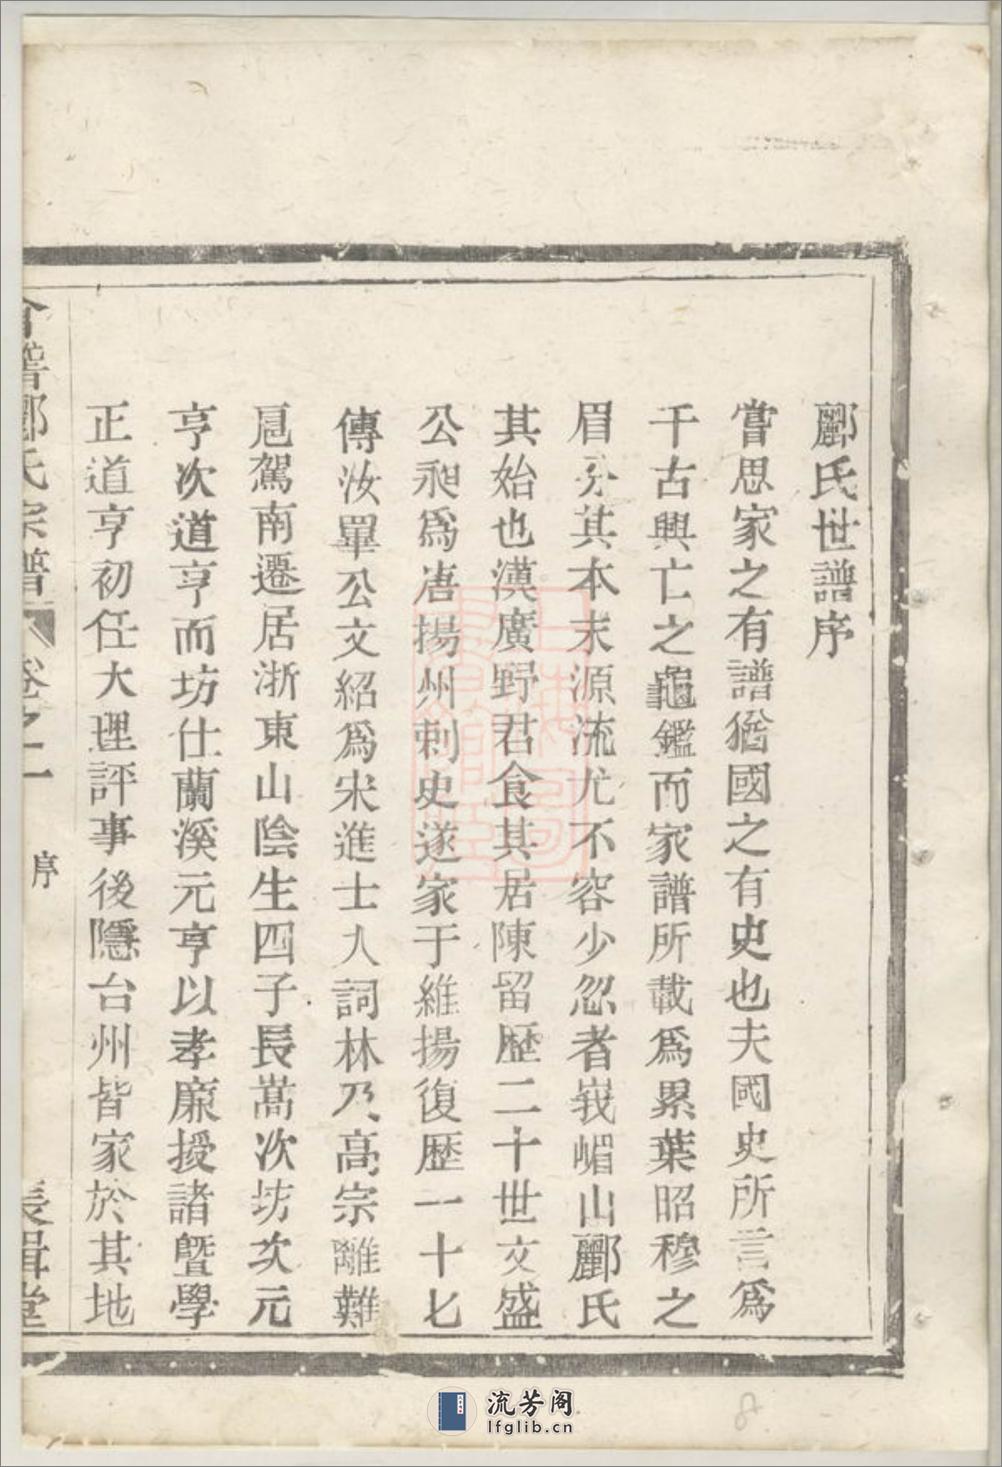 酈氏世譜序
嘗思家之有譜猶國之有史也夫國史所言爲
千古興亡之龜鑑而家譜所載爲累葉昭穆之
眉分其本末源流尤不容少忽者峩嵋山酈氏
其始也漢廣野君食其居陳留歷二十世文盛
公昶爲唐揚州刺史遂家于維揚復歷一十七
傳汝畢公文紹爲宋進士人詞林乃高宗離難
扈駕南遷居浙東山陰生四子長萬次坊次元
亨次道亨而坊仕蘭溪元亨以孝廉授諸暨學
正道亨初任大理評事後隱台州皆家於其地
合譜酈氏宗譜 卷之一 序 長緝堂
流芳阁
lfglib.cn